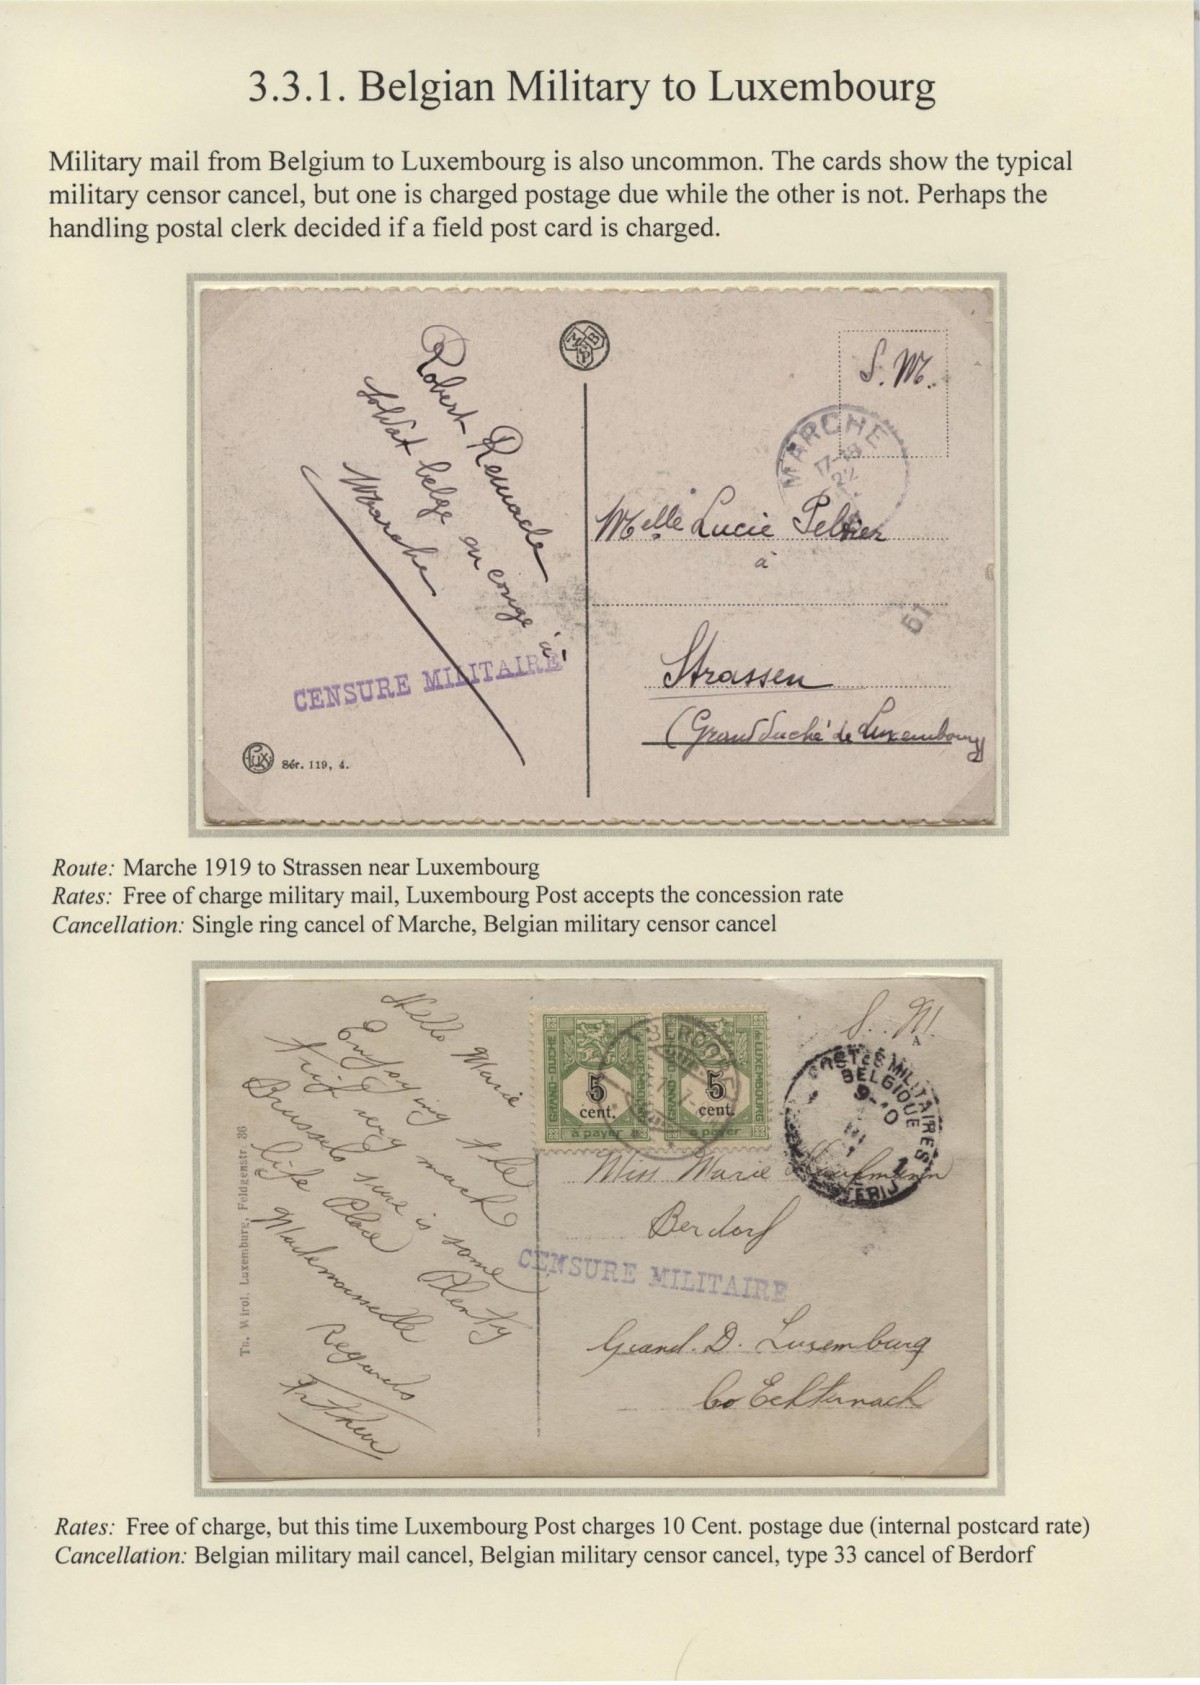 3.3.1. Belgian Military to Luxembourg
Military mail from Belgium to Luxembourg is also uncommon. The cards show the typical
military censor cancel, but one is charged postage due while the other is not. Perhaps the
handling postal clerk decided if a field post card is charged.
Robert Remacle
soldat belge en congé à
Marche
CENSURE MILITAIRE
Lux
Sér. 119, 4.
M B P
S. M.
MARCHE
17-18
22
Melle Lucie Peltier
à
61
Strassen
(Grand Duché de Luxembourg)
Route: Marche 1919 to Strassen near Luxembourg
Rates: Free of charge military mail, Luxembourg Post accepts the concession rate
Cancellation: Single ring cancel of Marche, Belgian military censor cancel
Hello Marie
Enjoying the
trip very much
Brussels sure is some
life Place Plenty
Mademoiselle
Regards
Arthur
Th. Wirol. Luxemburg, Feldgenstr. 36
GRAND-DUCHÉ
5
cent.
à payer
GRAND
5
cent.
à payer
de LUXEMBOURG
BERDORF
S. M.
A
POSTES MILITAIRES
BELGIQUE
9-10
1
Miss Marie Kaufmann
Berdorf
CENSURE MILITAIRE
Grand. D. Luxemburg
Co Echternach
Rates: Free of charge, but this time Luxembourg Post charges 10 Cent. postage due (internal postcard rate)
Cancellation: Belgian military mail cancel, Belgian military censor cancel, type 33 cancel of Berdorf